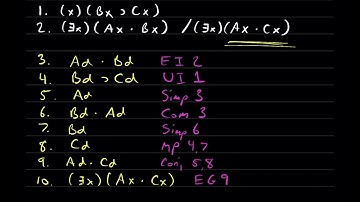 1. (x)(Bx ⊃ Cx)
2. (∃x)(Ax · Bx) /(∃x)(Ax · Cx)
3. Ad · Bd EI 2
4. Bd ⊃ Cd UI 1
5. Ad Simp 3
6. Bd · Ad Com 3
7. Bd Simp 6
8. Cd MP 4,7
9. Ad · Cd Conj 5,8
10. (∃x)(Ax · Cx) EG 9